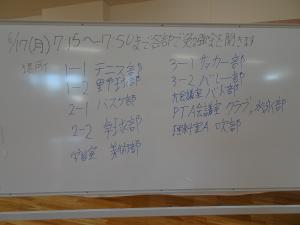 6/17(月) 7:15〜7:50まで各部で勉強会を開きます
場所 1-1 テニス部
1-2 野球部
2-1 バスケ部
2-2 卓球部
美術室 美術部
3-1 サッカー部
3-2 バレー部
大会議室 バド部
PTA会議室 クラブ、水泳部
理科室A 吹部